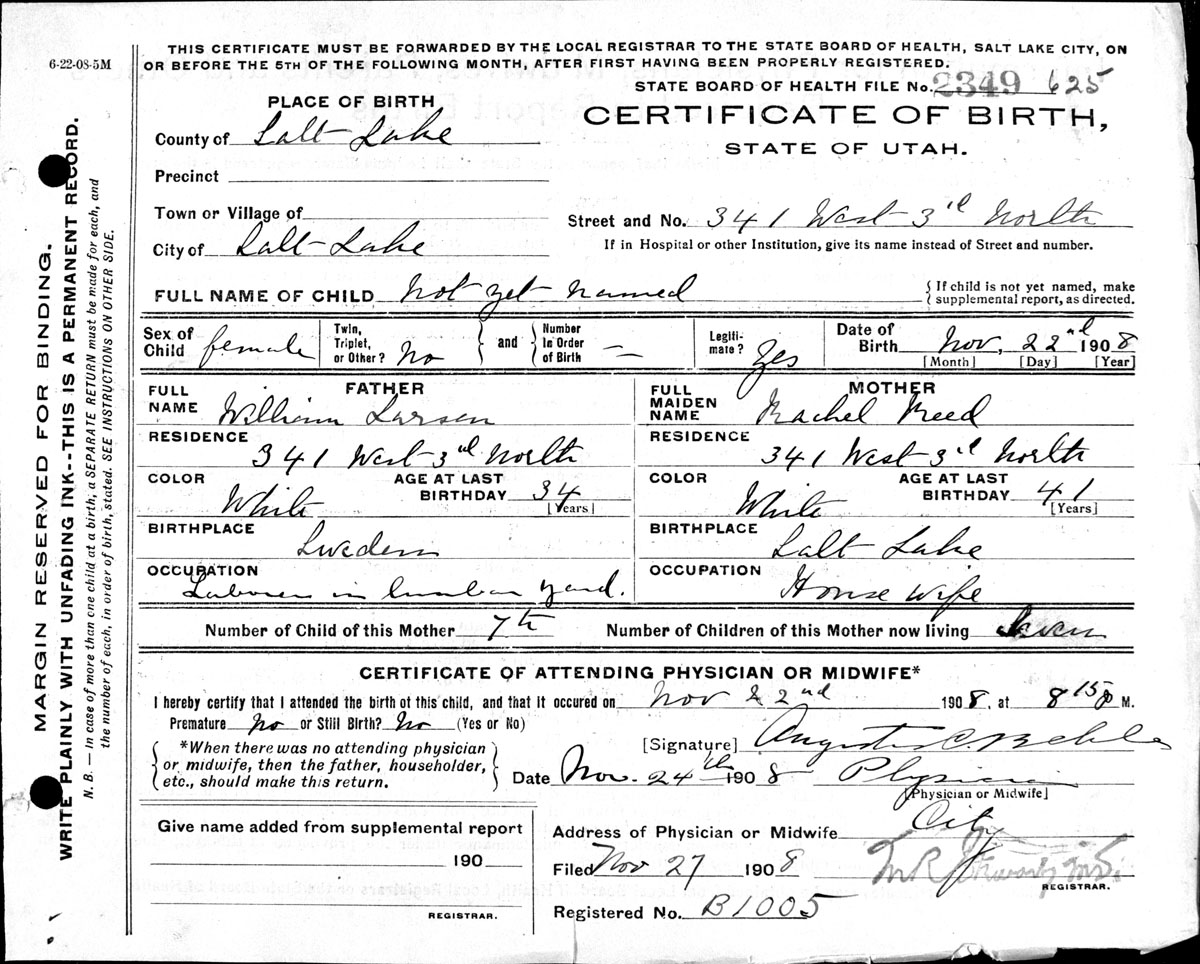 6-22-08-5M
THIS CERTIFICATE MUST BE FORWARDED BY THE LOCAL REGISTRAR TO THE STATE BOARD OF HEALTH, SALT LAKE CITY, ON
OR BEFORE THE 5TH OF THE FOLLOWING MONTH, AFTER FIRST HAVING BEEN PROPERLY REGISTERED.
STATE BOARD OF HEALTH FILE No. 2349 625
MARGIN RESERVED FOR BINDING.
WRITE PLAINLY WITH UNFADING INK--THIS IS A PERMANENT RECORD.
N. B. — In case of more than one child at a birth, a SEPARATE RETURN must be made for each, and
the number of each, in order of birth, stated. SEE INSTRUCTIONS ON OTHER SIDE.
PLACE OF BIRTH
CERTIFICATE OF BIRTH,
STATE OF UTAH.
County of Salt Lake
Precinct
Town or Village of
Street and No. 341 West 3rd North
City of Salt Lake
If in Hospital or other Institution, give its name instead of Street and number.
FULL NAME OF CHILD Not yet named
{ If child is not yet named, make
supplemental report, as directed.
Sex of Child female
Twin, Triplet, or Other? No
and
Number In Order of Birth —
Legiti-mate? Yes
Date of Birth Nov, 22nd 1908
[Month] [Day] [Year]
FATHER
FULL NAME William Larsen
RESIDENCE
341 West 3rd North
COLOR White AGE AT LAST BIRTHDAY 34
[Years]
BIRTHPLACE
Sweden
OCCUPATION
Laborer in lumber yard.
MOTHER
FULL MAIDEN NAME Rachel Reed
RESIDENCE
341 West 3rd North
COLOR White AGE AT LAST BIRTHDAY 41
[Years]
BIRTHPLACE
Salt Lake
OCCUPATION
House wife
Number of Child of this Mother 7th Number of Children of this Mother now living Seven
CERTIFICATE OF ATTENDING PHYSICIAN OR MIDWIFE*
I hereby certify that I attended the birth of this child, and that it occured on Nov 22nd 1908, at 8 15 M.
Premature No or Still Birth? No (Yes or No)
{ *When there was no attending physician
or midwife, then the father, householder,
etc., should make this return. }
[Signature] C.
Date Nov. 24th 1908 Physician
[Physician or Midwife]
Give name added from supplemental report
190
REGISTRAR.
Address of Physician or Midwife City
Filed Nov 27 1908
REGISTRAR.
Registered No. B1005